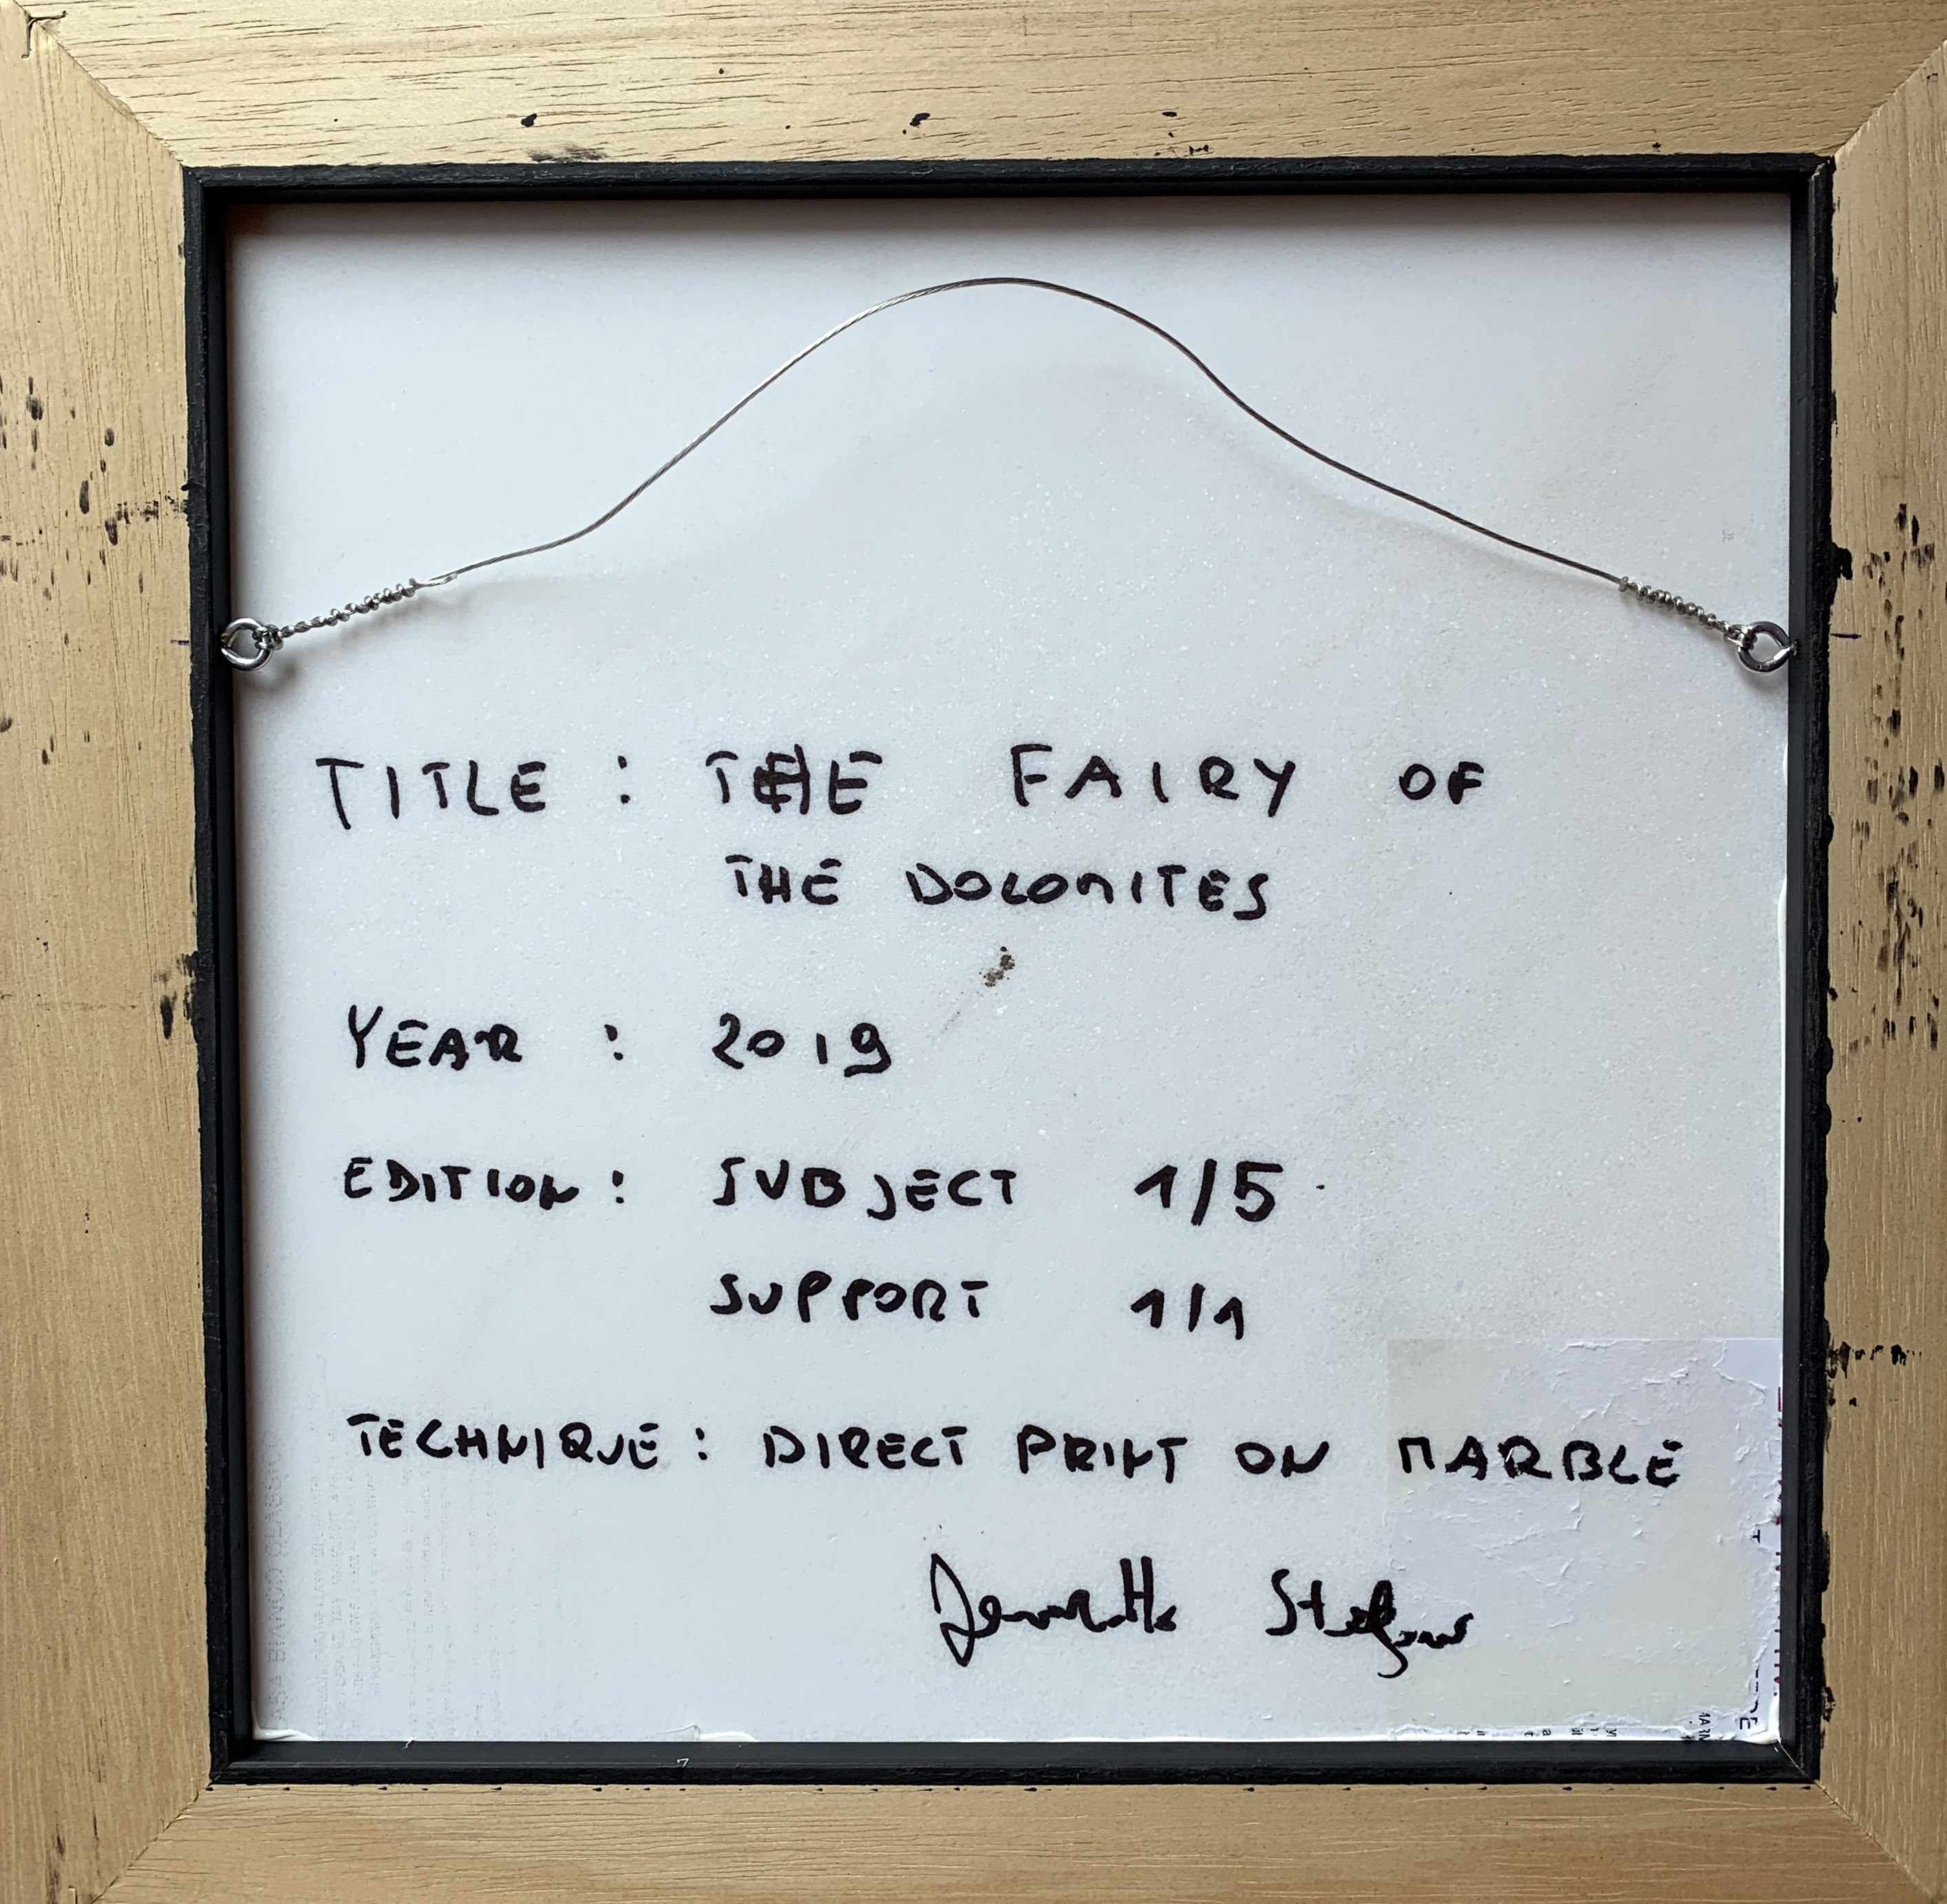 TITLE : THE FAIRY OF
THE DOLOMITES
YEAR : 2019
EDITION : SUBJECT 1/5
SUPPORT 1/1
TECHNIQUE : DIRECT PRINT ON MARBLE